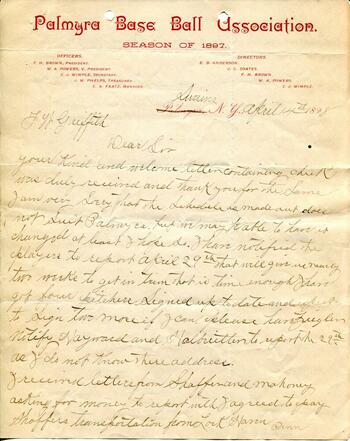 Palmyra Base Ball Association.
SEASON OF 1897.
OFFICERS.
F. H. BROWN, PRESIDENT.
W. A. POWERS, V. PRESIDENT.
C. J. WIMPLE, SECRETARY.
J. W. PHELPS, TREASURER
C. A. FRATZ, MANAGER.
DIRECTORS.
E. B. ANDERSON.
J. C. COATES.
F. H. BROWN.
W. A. POWERS.
C. J. WIMPLE.
Palmyra, N. Y. April 4th 1898
F W Griffith
Dear Sir
your kind and welcome letter containing check
was duly received and thank you for the same
I am very Sory that the Schedule as made out does
not Suit Palmyra. but we may be able to have it
changed at least I hope So. I have notified the
players to report April 29th that will give us nearly
two weeks to get in trim that is time enough I have
got four pitchers Signed up to date and expect
to Sign two more if I can release
Notify Hayward and to report the 29th
as I do not know there address.
I received letters from Shaffer and mahoney
asking for money to report with I agreed to pay
Shaffers transportation from Lock Haven